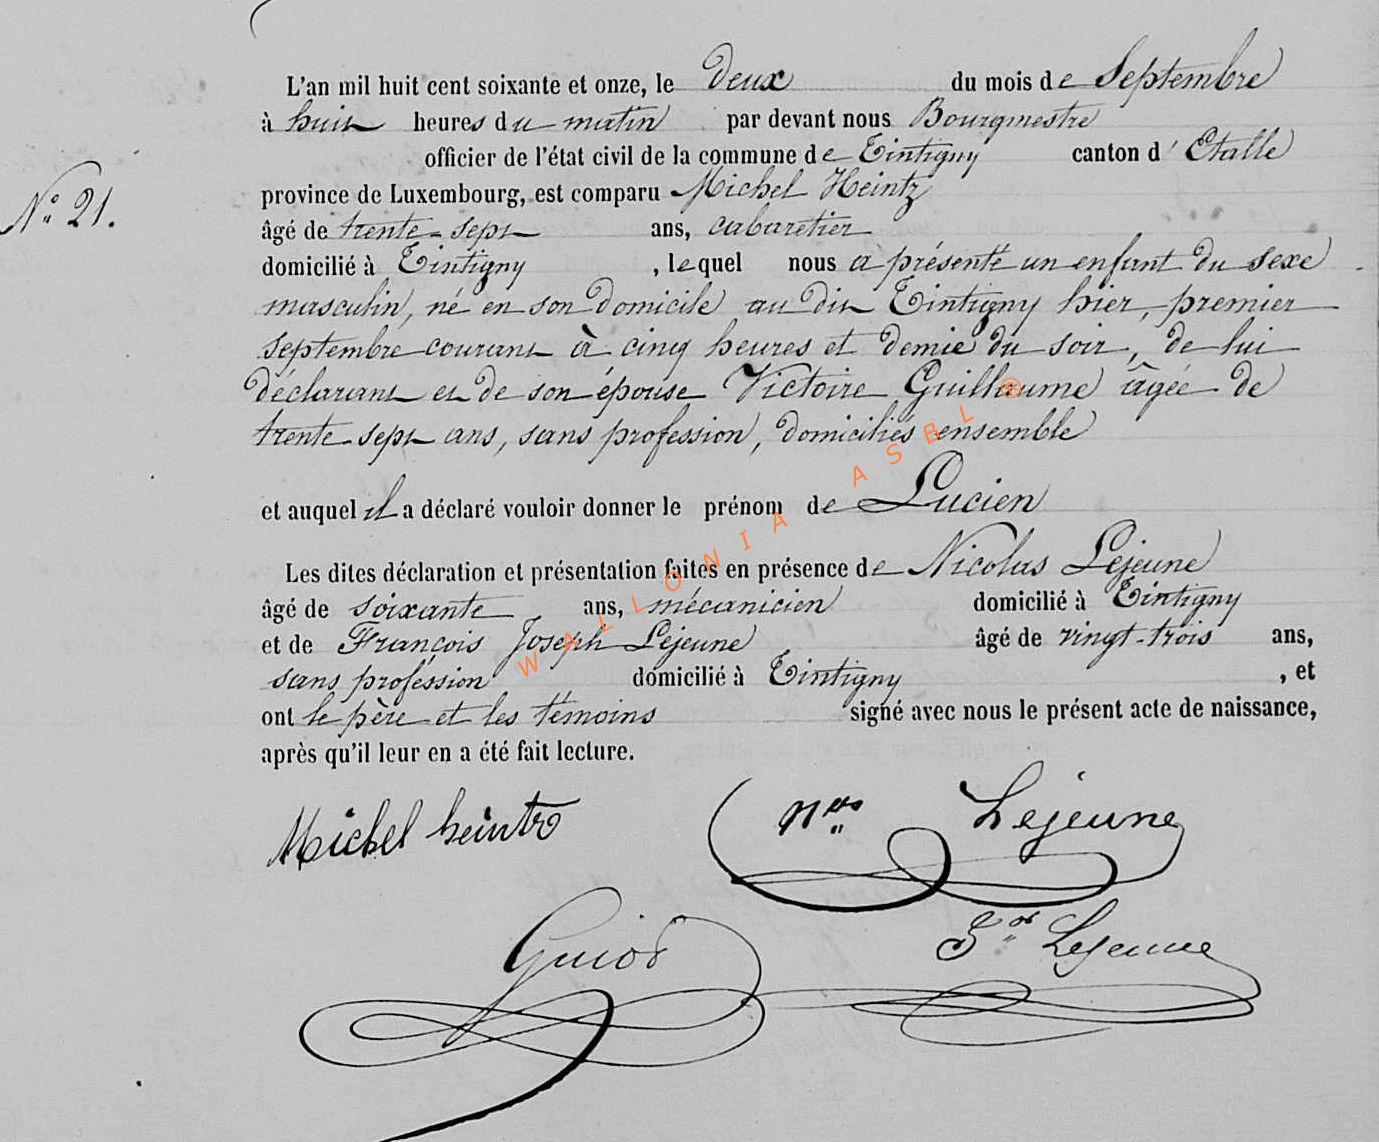 L'an mil huit cent soixante et onze, le deux du mois de Septembre
à huit heures du matin par devant nous Bourgmestre
officier de l'état civil de la commune de Tintigny canton d'Etalle
province de Luxembourg, est comparu Michel Heintz
N° 21.
âgé de trente-sept ans, cabaretier
domicilié à Tintigny, lequel nous a présenté un enfant du sexe
masculin, né en son domicile au dit Tintigny hier, premier
septembre courant à cinq heures et demie du soir, de lui
déclarant et de son épouse Victoire Guillaume âgée de
trente-sept ans, sans profession, domiciliés ensemble
et auquel il a déclaré vouloir donner le prénom de Lucien
Les dites déclaration et présentation faites en présence de Nicolas Lejeune
âgé de soixante ans, mécanicien domicilié à Tintigny
et de François Joseph Lejeune âgé de vingt-trois ans,
sans profession domicilié à Tintigny, et
ont le père et les témoins signé avec nous le présent acte de naissance,
après qu'il leur en a été fait lecture.
Michel heintz
Nas Lejeune
Guiot
Lejeune
WALLONIA ASBL ®